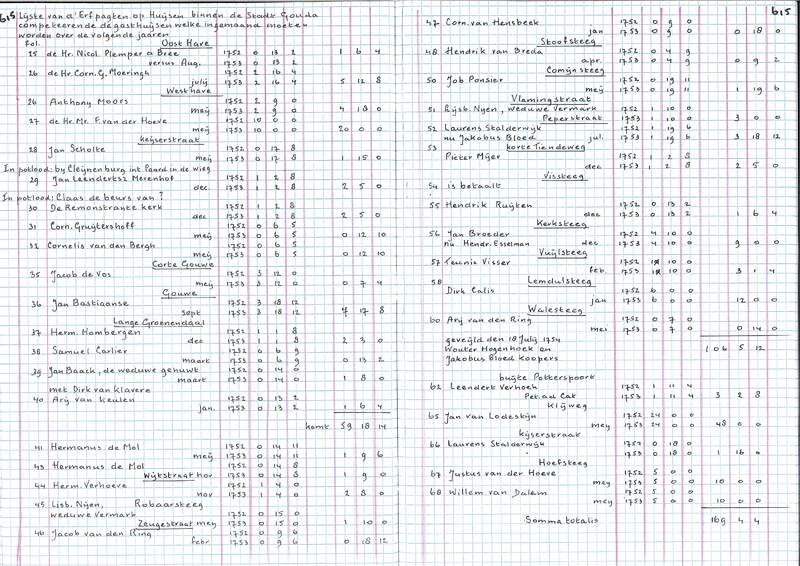 615 Lijste van d'Erfpagten op Huijsen binnen de Stadt Gouda
competeerende de gasthuijsen welke ingemaand moeten
worden over de volgende jaaren
Fol. Oost Have
25 de Hr. Nicol. Plemper a Bree 1752 0 13 2 1 6 4
versus Aug. 1753 0 13 2
26 de Hr. Corn. G. Moeringh 1752 2 16 4
julij 1753 2 16 4 5 12 8
West have
26 Anthony Moors 1752 2 9 0
meij 1753 2 9 0 4 18 0
27 de Hr. Mr. F. van der Hoeve 1752 10 0 0
meij 1753 10 0 0 20 0 0
keijserstraat
28 Jan Scholte 1752 0 17 8
meij 1753 0 17 8 1 15 0
In potlood: bij Cleijnenburg int Paard in de wieg
29 Jan Leendertsz Merenhof 1752 1 2 8
dec. 1753 1 2 8 2 5 0
In potlood: Claas de beurs van?
30 De Remonstrante kerk 1752 1 2 8
dec 1753 1 2 8 2 5 0
31 Corn. Gruijtershoff 1752 0 6 5
meij 1753 0 6 5 0 12 10
32 Cornelis van den Bergh 1752 0 6 5
meij 1753 0 6 5 0 12 10
Corte Gouwe
35 Jacob de Vos 1752 3 12 0
meij 1753 3 12 0 0 7 4
Gouwe
36 Jan Bastiaanse 1752 3 18 12
sept 1753 3 18 12 7 17 8
Lange Groenendaal
37 Herm. Hombergen 1752 1 1 8
dec 1753 1 1 8 2 3 0
38 Samuel Carlier 1752 0 6 9
maart 1753 0 6 9 0 13 2
39 Jan Baack, de weduwe gehuwt 1752 0 14 0
maart 1753 0 14 0 1 8 0
met Dirk van klavere
40 Arij van keulen 1752 0 13 2
jan. 1753 0 13 2 1 6 4
komt 59 18 14
41 Hermanus de Mol 1752 0 14 11
meij 1753 0 14 11 1 9 6
43 Hermanus de Mol 1752 0 14 8
Wijdstraat nov 1753 0 14 8 1 9 0
44 Herm. Verhoeve 1752 1 4 0
nov 1753 1 4 0 2 8 0
45 Lisb. Nijen, Robaarsteeg
weduwe Vermark 1752 0 15 0
Zeugestraat meij 1753 0 15 0 1 10 0
46 Jacob van den Ring 1752 0 9 6
febr 1753 0 9 6 0 18 12
615
47 Corn. van Hensbeek 1752 0 9 0
jan 1753 0 9 0 0 18 0
Stoofsteeg
48 Hendrik van Breda 1752 0 4 9
apr. 1753 0 4 9 0 9 2
Comijnsteeg
50 Job Ponsier 1752 0 19 11
meij 1753 0 19 11 1 19 6
Vlamingstraat
51 Lijsb. Nyen, weduwe Vermark 1752 1 10 0
Peperstraat 1753 1 10 0 3 0 0
52 Laurens Stalderwijk 1752 1 19 6
nu Jakobus Bloed jul. 1753 1 19 6 3 18 12
53 korte Tiendeweg
Pieter Mijer 1752 1 2 8
dec 1753 1 2 8 2 5 0
Vissteeg
54 is betaalt
55 Hendrik Ruijten 1752 0 13 2
dec 1753 0 13 2 1 6 4
Kerksteeg
56 Jan Broeder 1752 4 10 0
nu Hendr. Esselman dec 1753 4 10 0 9 0 0
Vuijlsteeg
57 Teunis Visser 1752 10 0
feb. 1753 10 0 3 1 4
58 Lemdulsteeg
Dirk Calis 1752 6 0 0
jan 1753 6 0 0 12 0 0
Walesteeg
60 Arij van den Ring 1752 0 7 0
mei 1753 0 7 0 0 14 0
geveijld den 18 Julij 1754
Wouter Hogenhoek en
Jakobus Bloed koopers
106 5 12
buijte Potterspoort
62 Leendert Verhoeh 1752 1 11 4
Pet. ad Cat 1753 1 11 4 3 2 8
Kleijweg
65 Jan van Lodestijn 1752 24 0 0
mey 1753 24 0 0 48 0 0
kijserstraat
66 Laurens Stalderwijk 1752 0 18 0
1753 0 18 0 1 16 0
Hoefsteeg
67 Justus van der Hoeve 1752 5 0 0
mey 1753 5 0 0 10 0 0
68 Willem van Dalem 1752 5 0 0
mey 1753 5 0 0 10 0 0
Somma totalis 169 4 4